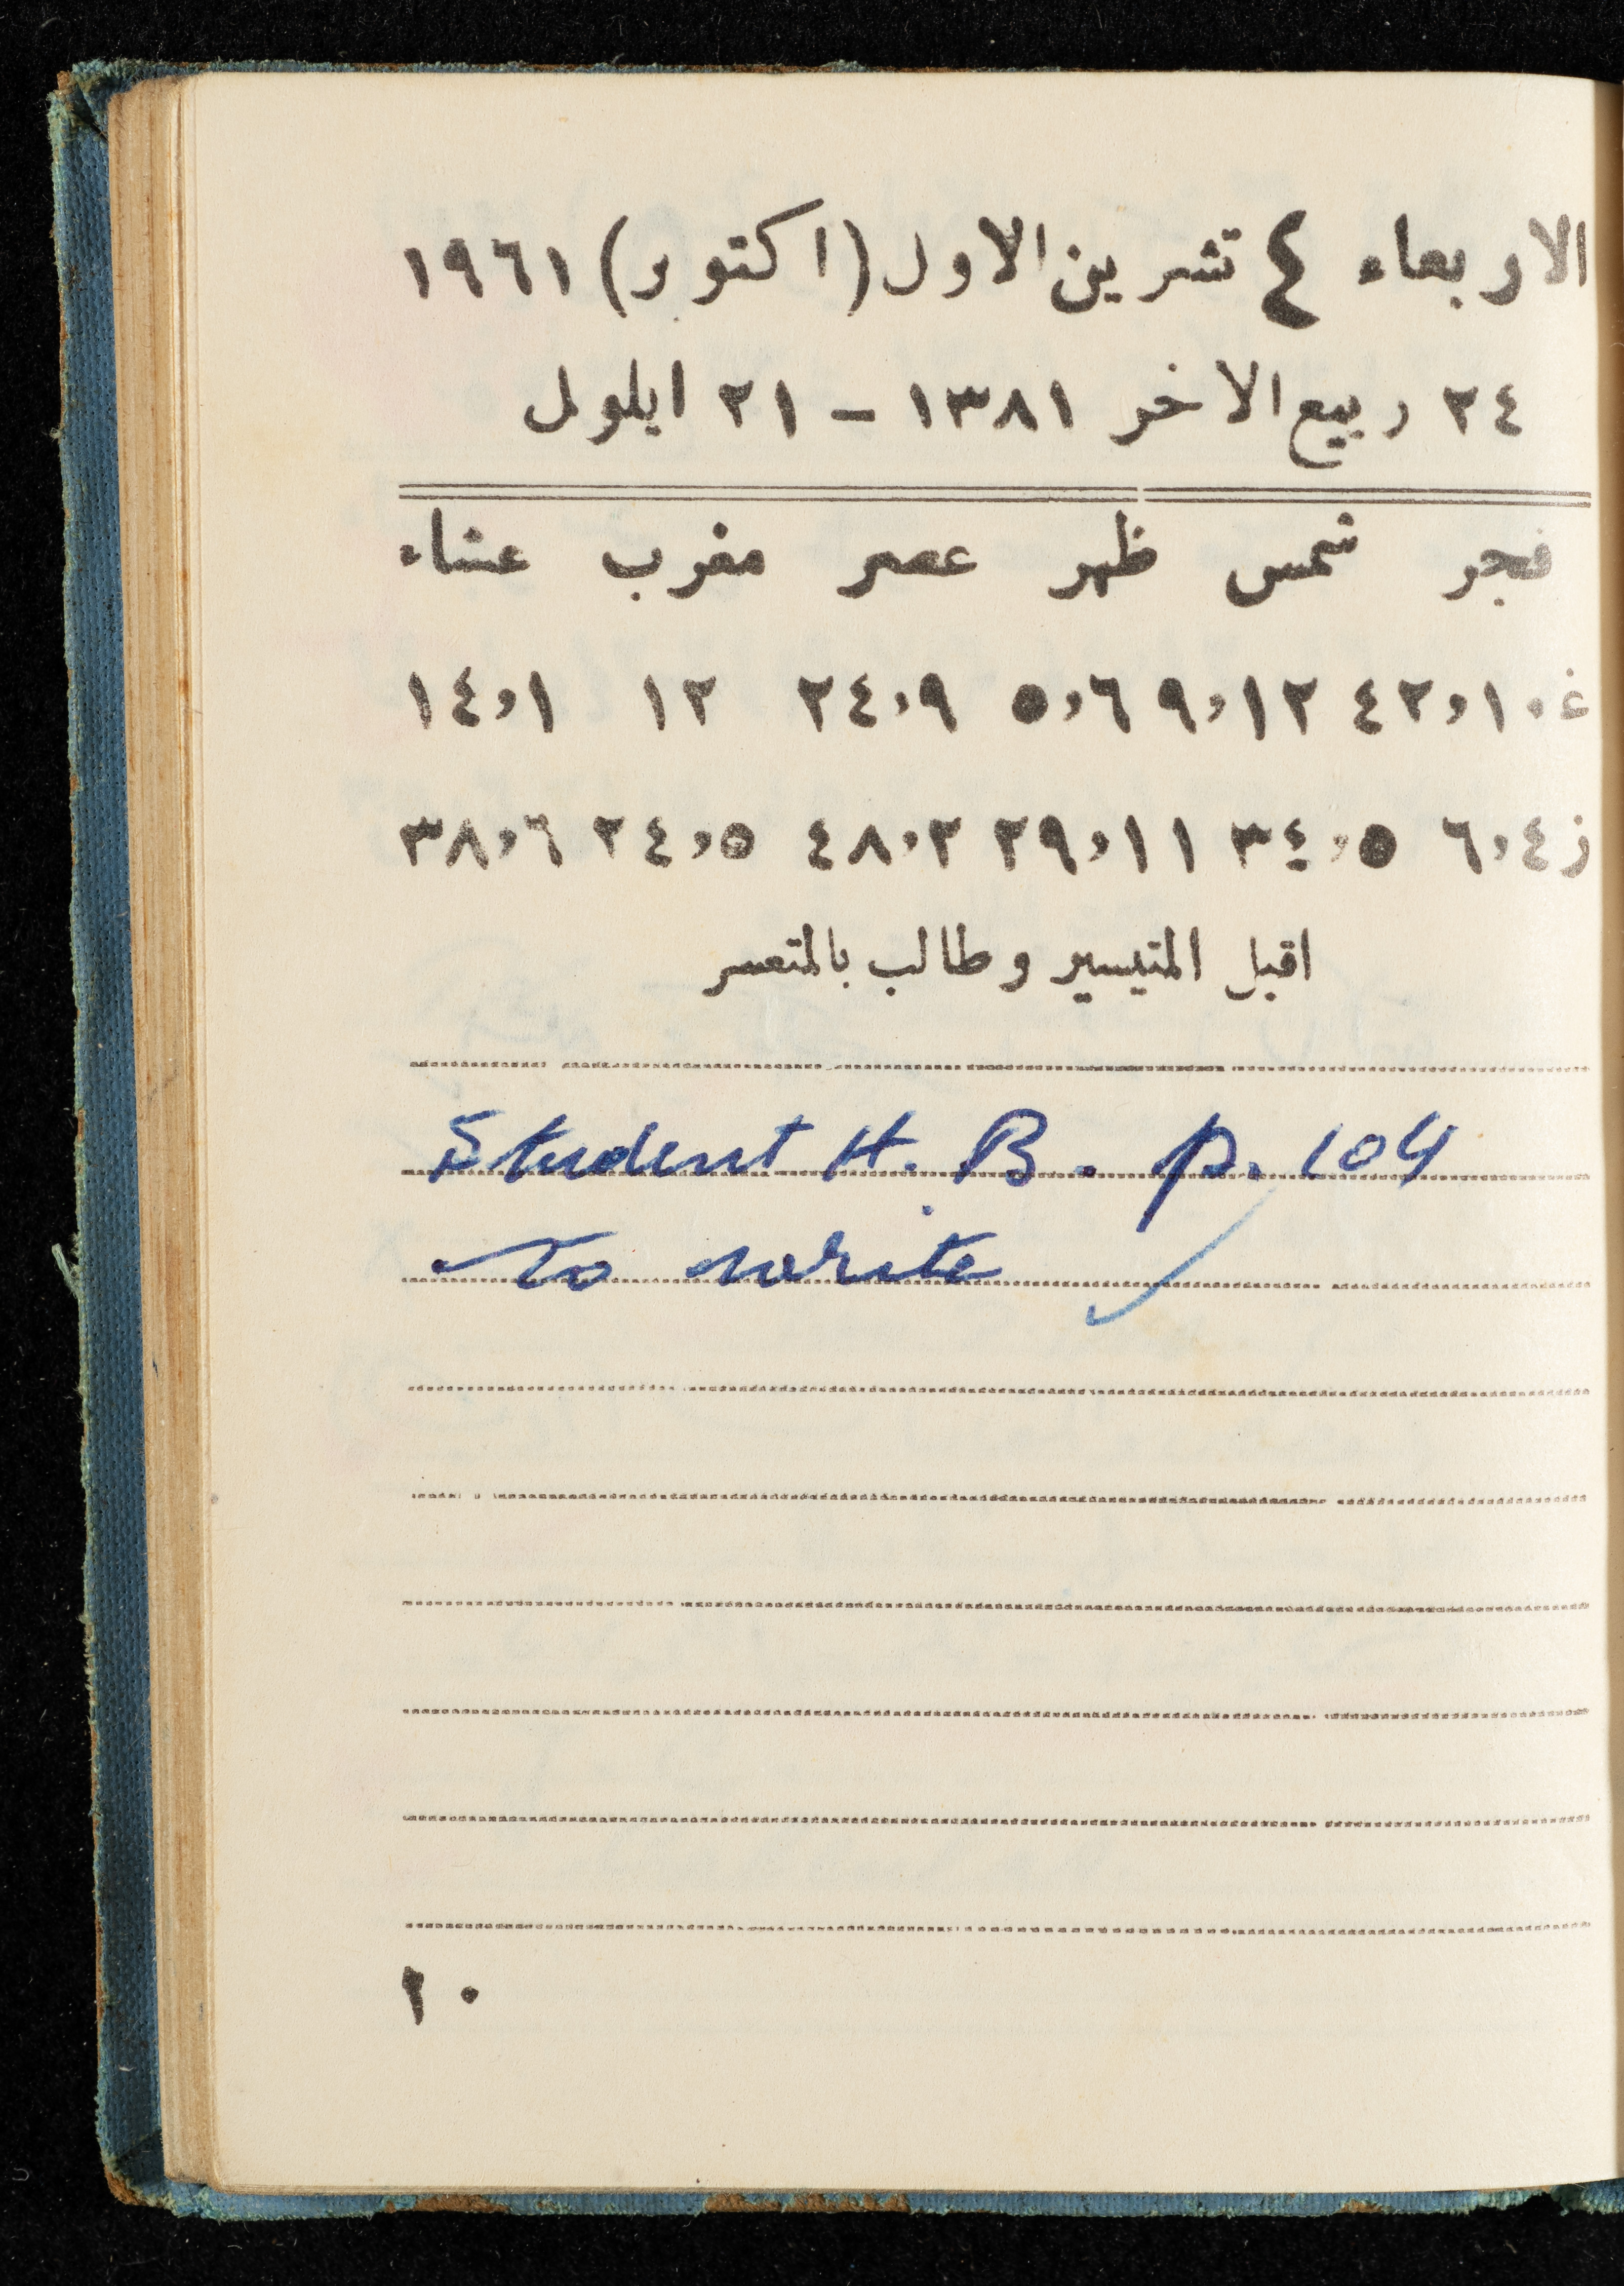 الاربعاء ٤ تشرين الاول (اكتوبر) ١٩٦١
٢٤ ربيع الاخر ١٣٨١ – ٢١ ايلول
فجر شمس ظهر عصر مغرب عشاء
غ ١٠,٤٢ ١٢,٩ ٦,٥ ٩,٢٤ ١٢ ١,١٤
ز ٤,٦ ٥,٣٤ ١١,٢٩ ٢,٤٨ ٥,٢٤ ٦,٣٨
اقبل المتيسير وطالب بالمتعسر
Student H. B. p. 104
To write
٢٠